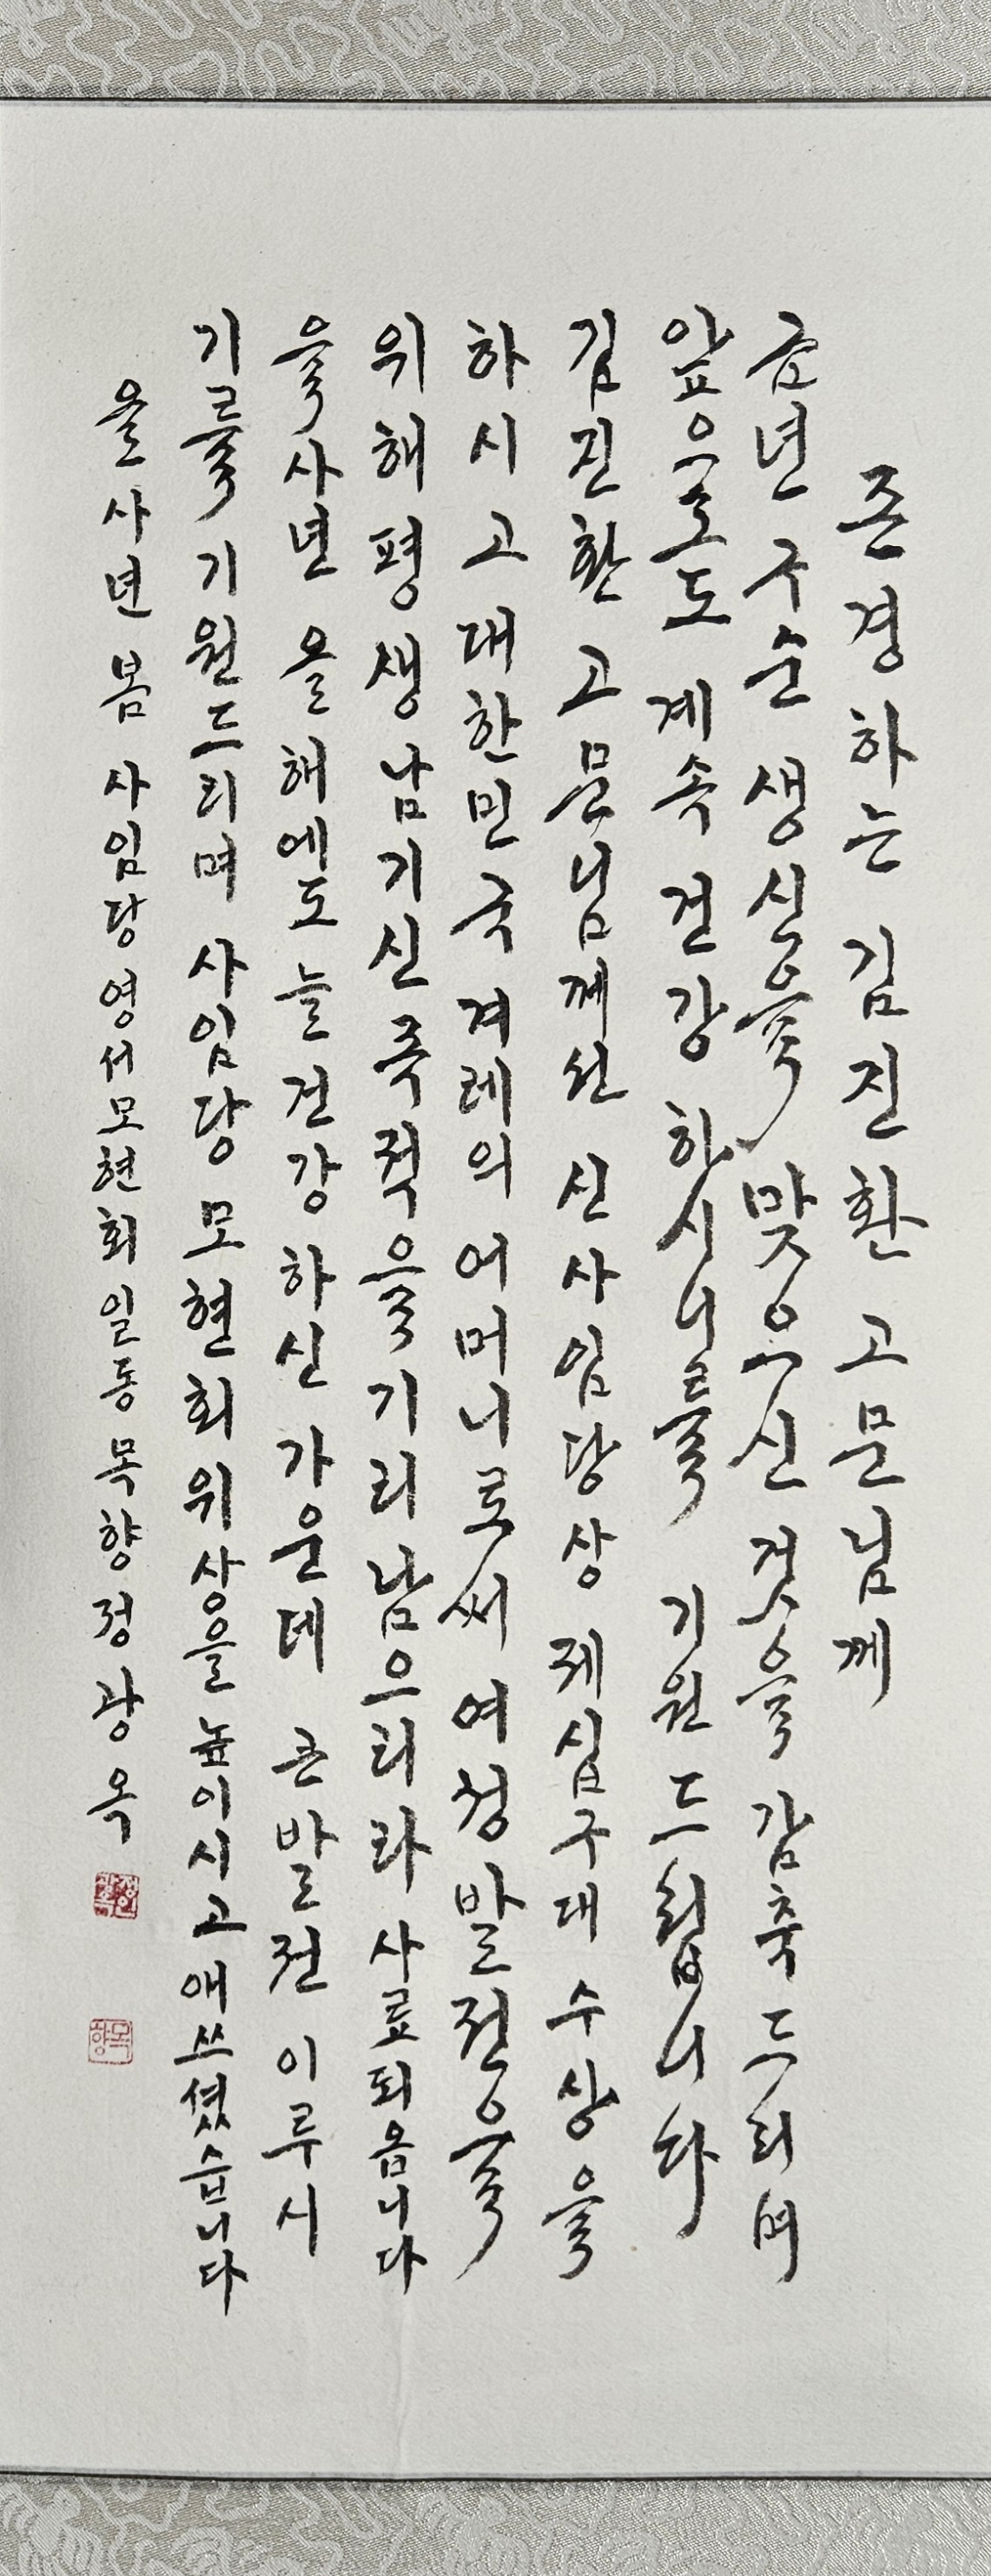 존경하는 김진환 고문님께
금년 구순 생신을 맞으신 것을 감축드리며
앞으로도 계속 건강하시니를 기원드립니다
김진환 고문님께선 신사임당상 제십구대 수상을
하시고 대한민국 겨레의 어머니로써 여성발전을
위해 평생 남기신 족적을 기리 남으리라 사료되옵니다
을사년 올해에도 늘 건강하신 가운데 큰 발전 이루시
기를 기원드리며 사임당 모현회 위상을 높이시고 애쓰셨습니다
을사년 봄 사임당영서모현회 일동 목향 정광옥
정광옥
목향